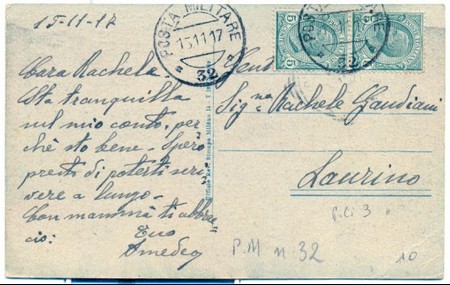 15-11-17
Cara Rachele,
Sta tranquilla
sul mio conto, per
chè sto bene - Spero
presto di poterti scri
vere a lungo -
con mamma ti abbrac
cio:
Tuo
Amedeo
POSTA MILITARE
15.11.17
32
32
5
5
Gent
Sig.na Rachele Gaudiani
Laurino
P.M n. 32
10